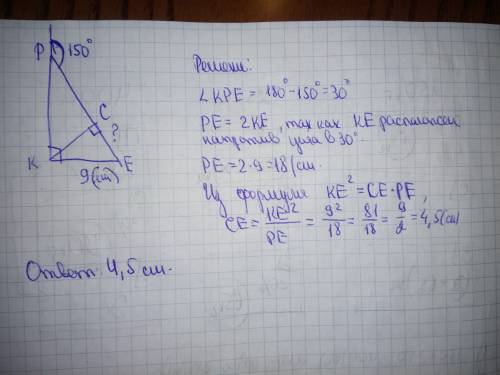 P 150°
C
?
K E
9(см)
Решение:
∠KPE = 180° - 150° = 30°
PE = 2KE, так как KE расположен
напротив угла в 30°.
PE = 2·9 = 18(см.
Из формулы KE² = CE·PE,
CE = KE²/PE = 9²/18 = 81/18 = 9/2 = 4,5(см)
Ответ: 4,5 см.